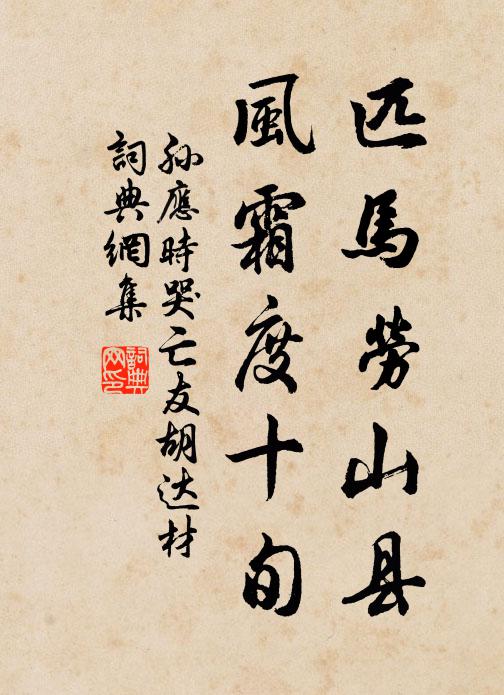 匹馬勞山县
風霜度十旬
孙應時哭亡友胡达材
詞典網集
詞典網印